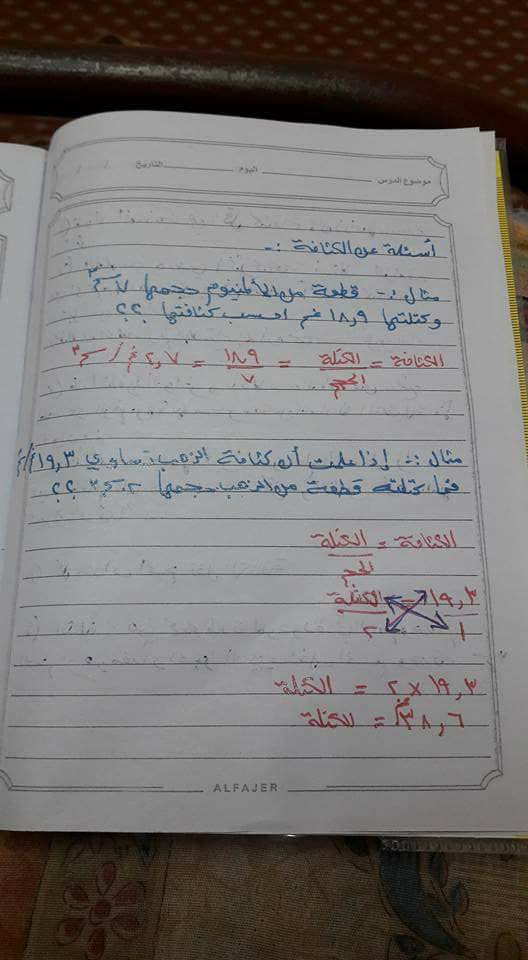 موضوع الدرس اليوم التاريخ
أسئلة عن الكثافة :-
مثال :- قطعة من الألمنيوم حجمها ٧ سم٣
وكتلتها ١٨,٩ غم احسب كثافتها ؟؟
الكثافة = الكتلة / الحجم = ١٨٩ / ٧ = ٢,٧ غم / سم٣
مثال :- إذا علمت أن كثافة الذهب تساوي ١٩,٣
فما كتلة قطعة من الذهب حجمها ٢ سم٣ ؟؟
الكثافة = الكتلة
الحجم
١٩,٣ = الكتلة
١ ٢
١٩,٣ × ٢ = الكتلة
٣٨,٦ = الكتلة
ALFAJER